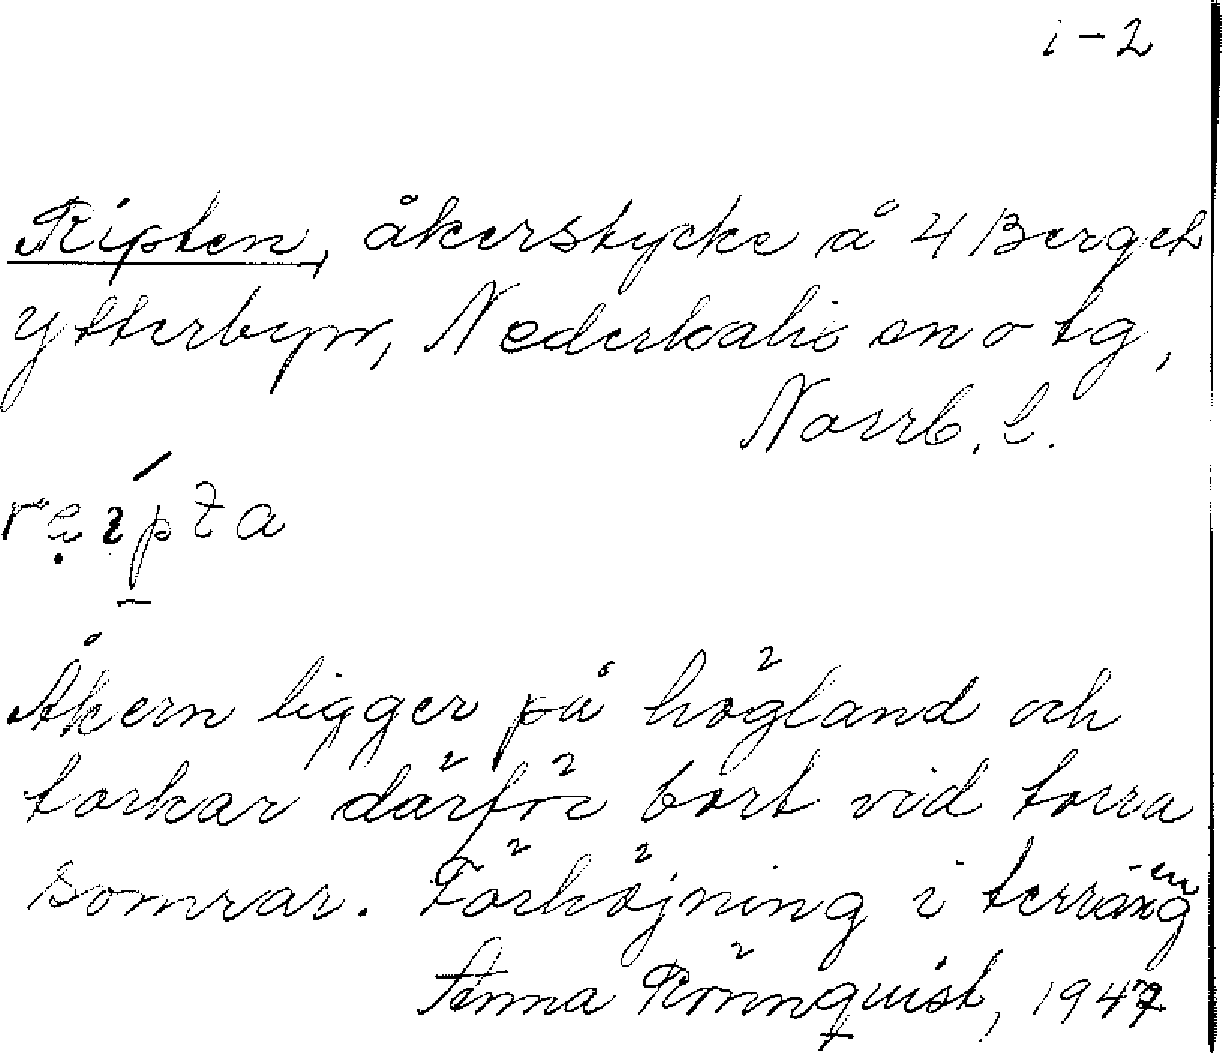 i-2
Ripten, åkerstycke å 4 Berget
Ytterbyn, Nederkalix sn o tg,
Norrb. l.
Åkern ligger på högland och
torkar därför bort vid torra
somrar. Förhöjning i terrängen
Anna Rönnquist, 1947